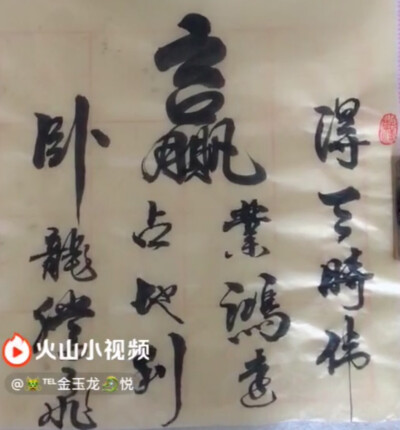 得天時偉
業鴻
赢
占地利
卧龍騰飛
火山小视频
@℡金玉龙悦